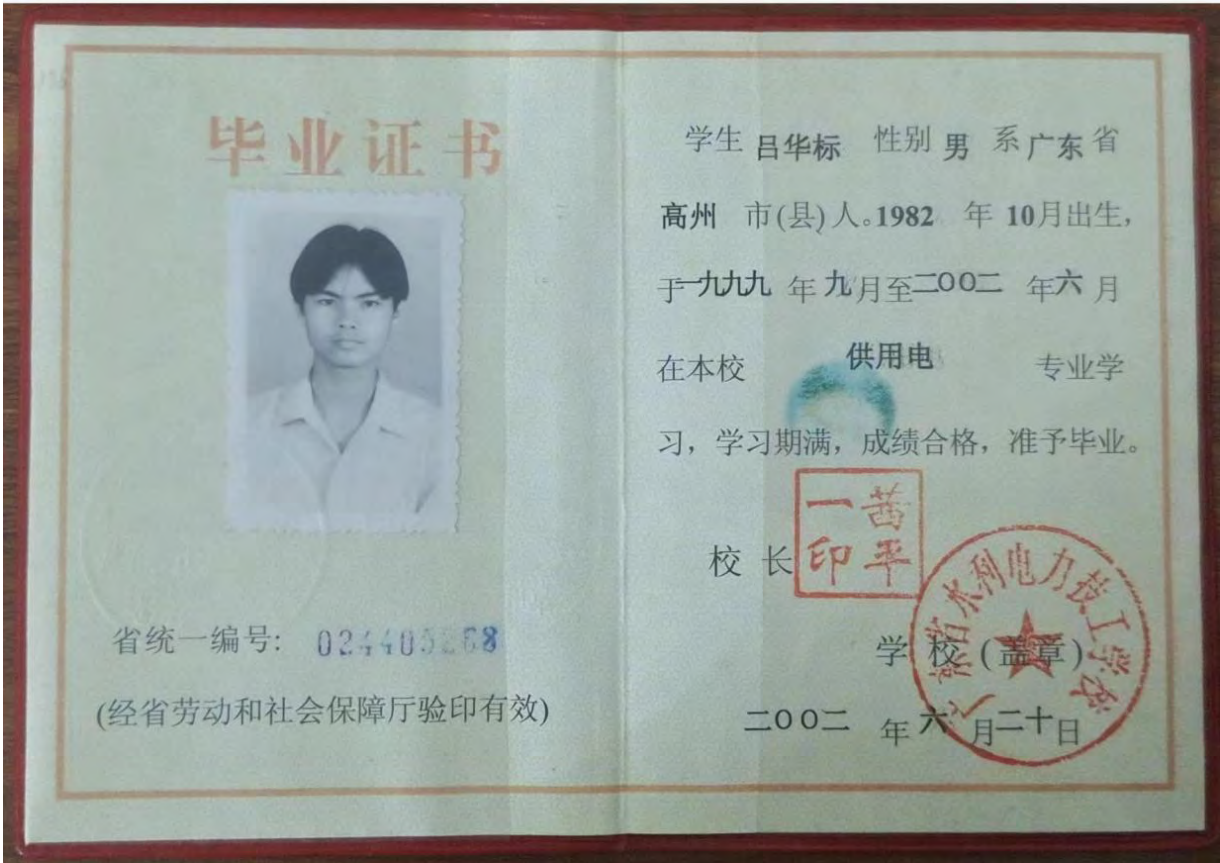 毕业证书
省统一编号: 024405268
(经省劳动和社会保障厅验印有效)
学生 吕华标 性别 男 系 广东 省
高州 市(县)人。1982 年 10月出生,
于一九九九 年 九月至二〇〇二 年六 月
在本校 供用电 专业学
习, 学习期满, 成绩合格, 准予毕业。
校 长 茜平一印
学 校 (盖章)
广东省水利电力技工学校
二〇〇二 年 六 月二十日